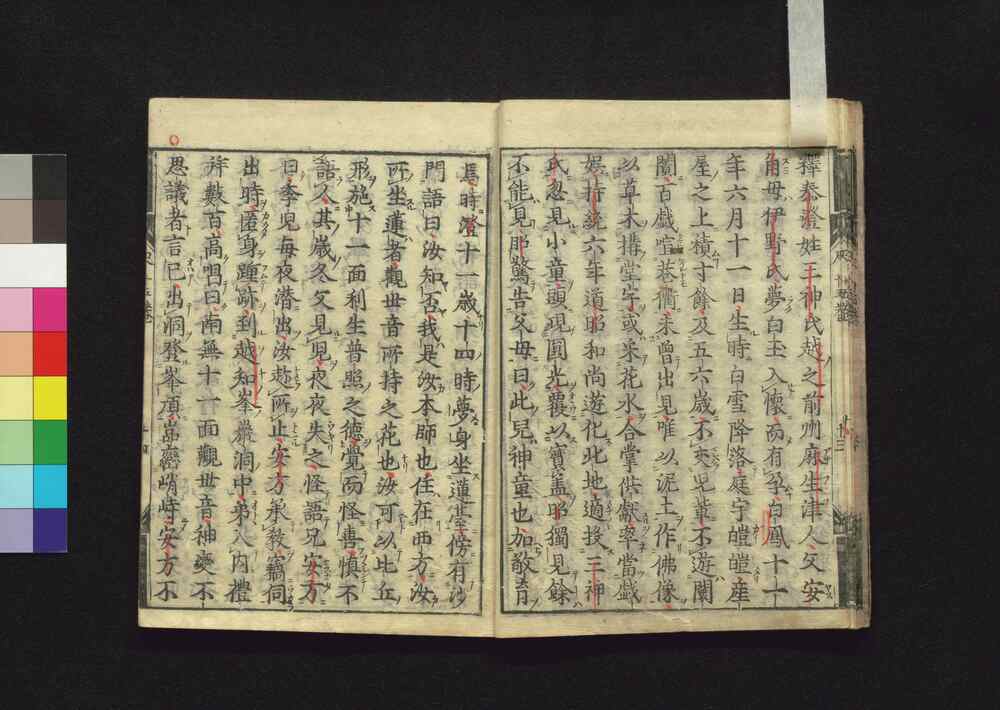 釋泰澄姓三神氏越之前州麻生津人父安
角母伊野氏夢白玉入懷而有孕白鳳十一
年六月十一日生時白雪降落庭宇皚皚產
屋之上積寸餘及五六歲不交兒輩不遊闤
闠百戲喧恭衢未曾出見唯以泥土作佛像
以草木搆堂宇或采花水合掌供獻率當戲
娯持統六年道昭和尚遊化此地適投三神
氏忽見小童頭現圓光覆以寶盖昭獨見餘
不能見昭驚告父母曰此兒神童也加敬育
焉時澄十一歲十四時夢身坐蓮臺傍有沙
門語曰汝知否我是汝本師也住在西方汝
所坐蓮者觀世音所持之花也汝可以比丘
形施十一面利生普照之德覺而怪善愼不
語人其歲久父見兒夜夜失之怪語兄安方
曰季兒每夜潛出汝趂所止安方承敎竊伺
出時匿身踵跡到越知峯巖洞中弟入內禮
拜數百高唱曰南無十一面觀世音神變不
思議者言已出洞登峯頂嵓巒峭峙安方不